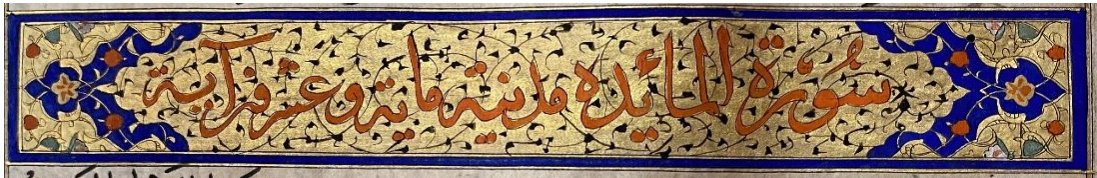 سورة المائده مدنية ماية وعشرون آية